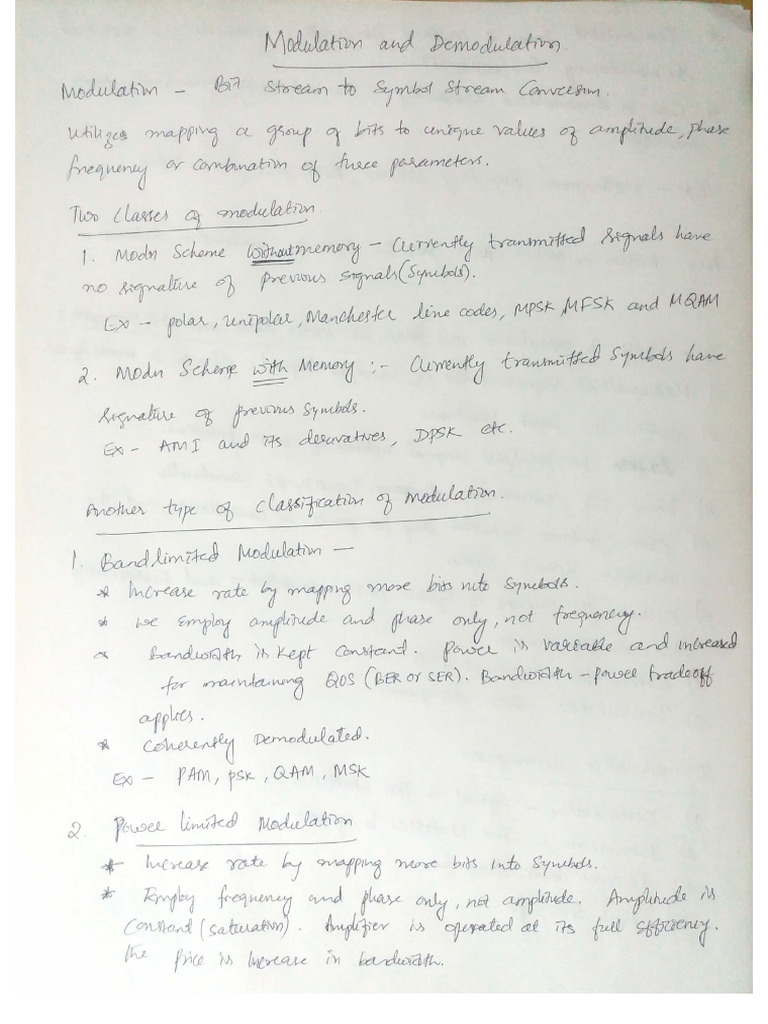 Modulation and Demodulation
Modulation - Bit stream to symbol stream conversion.
Utilizes mapping a group of bits to unique values of amplitude, phase
frequency or combination of three parameters.
Two Classes of modulation
1. Modn Scheme without memory - Currently transmitted signals have
no signature of previous signals (symbols).
Ex - polar, unipolar, Manchester line codes, MPSK, MFSK and MQAM
2. Modn Scheme with Memory :- Currently transmitted symbols have
signature of previous symbols.
Ex - AMI and its derivatives, DPSK etc.
Another type of classification of modulation.
1. Bandlimited Modulation -
* Increase rate by mapping more bits into symbols.
* We employ amplitude and phase only, not frequency.
* Bandwidth is kept constant. Power is variable and increased
for maintaining QOS (BER or SER). Bandwidth - power tradeoff
applies.
* Coherently Demodulated.
Ex - PAM, PSK, QAM, MSK
2. Power limited Modulation
* Increase rate by mapping more bits into symbols.
* Employ frequency and phase only, not amplitude. Amplitude is
constant (saturation). Amplifier is operated at its full efficiency.
The price is increase in bandwidth.